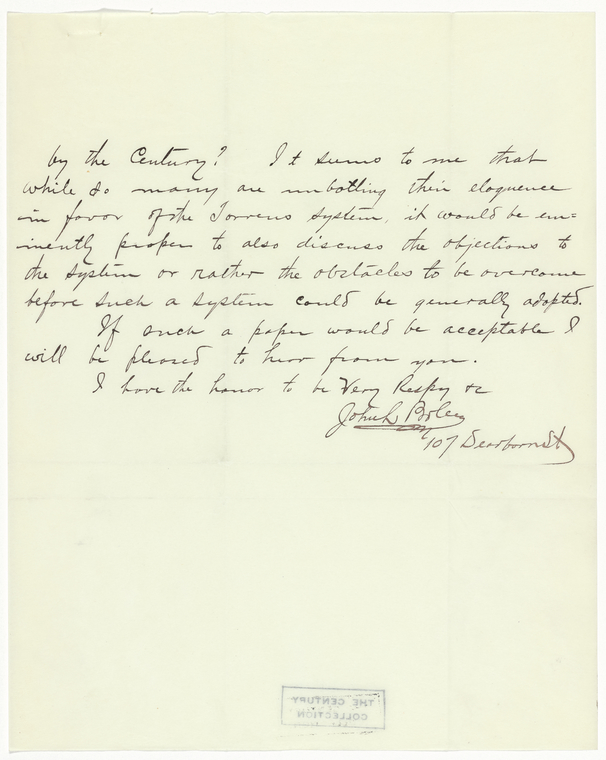 by the Century? It seems to me that
while so many are unbottling their eloquence
in favor of the Torrens system, it would be em=
inently proper to also discuss the objections to
the system or rather the obstacles to be overcome
before such a system could be generally adopted.
If such a paper would be acceptable I
will be pleased to hear from you.
I have the honor to be Very Respy &c
John
107 Dearborn St
THE CENTURY
COLLECTION